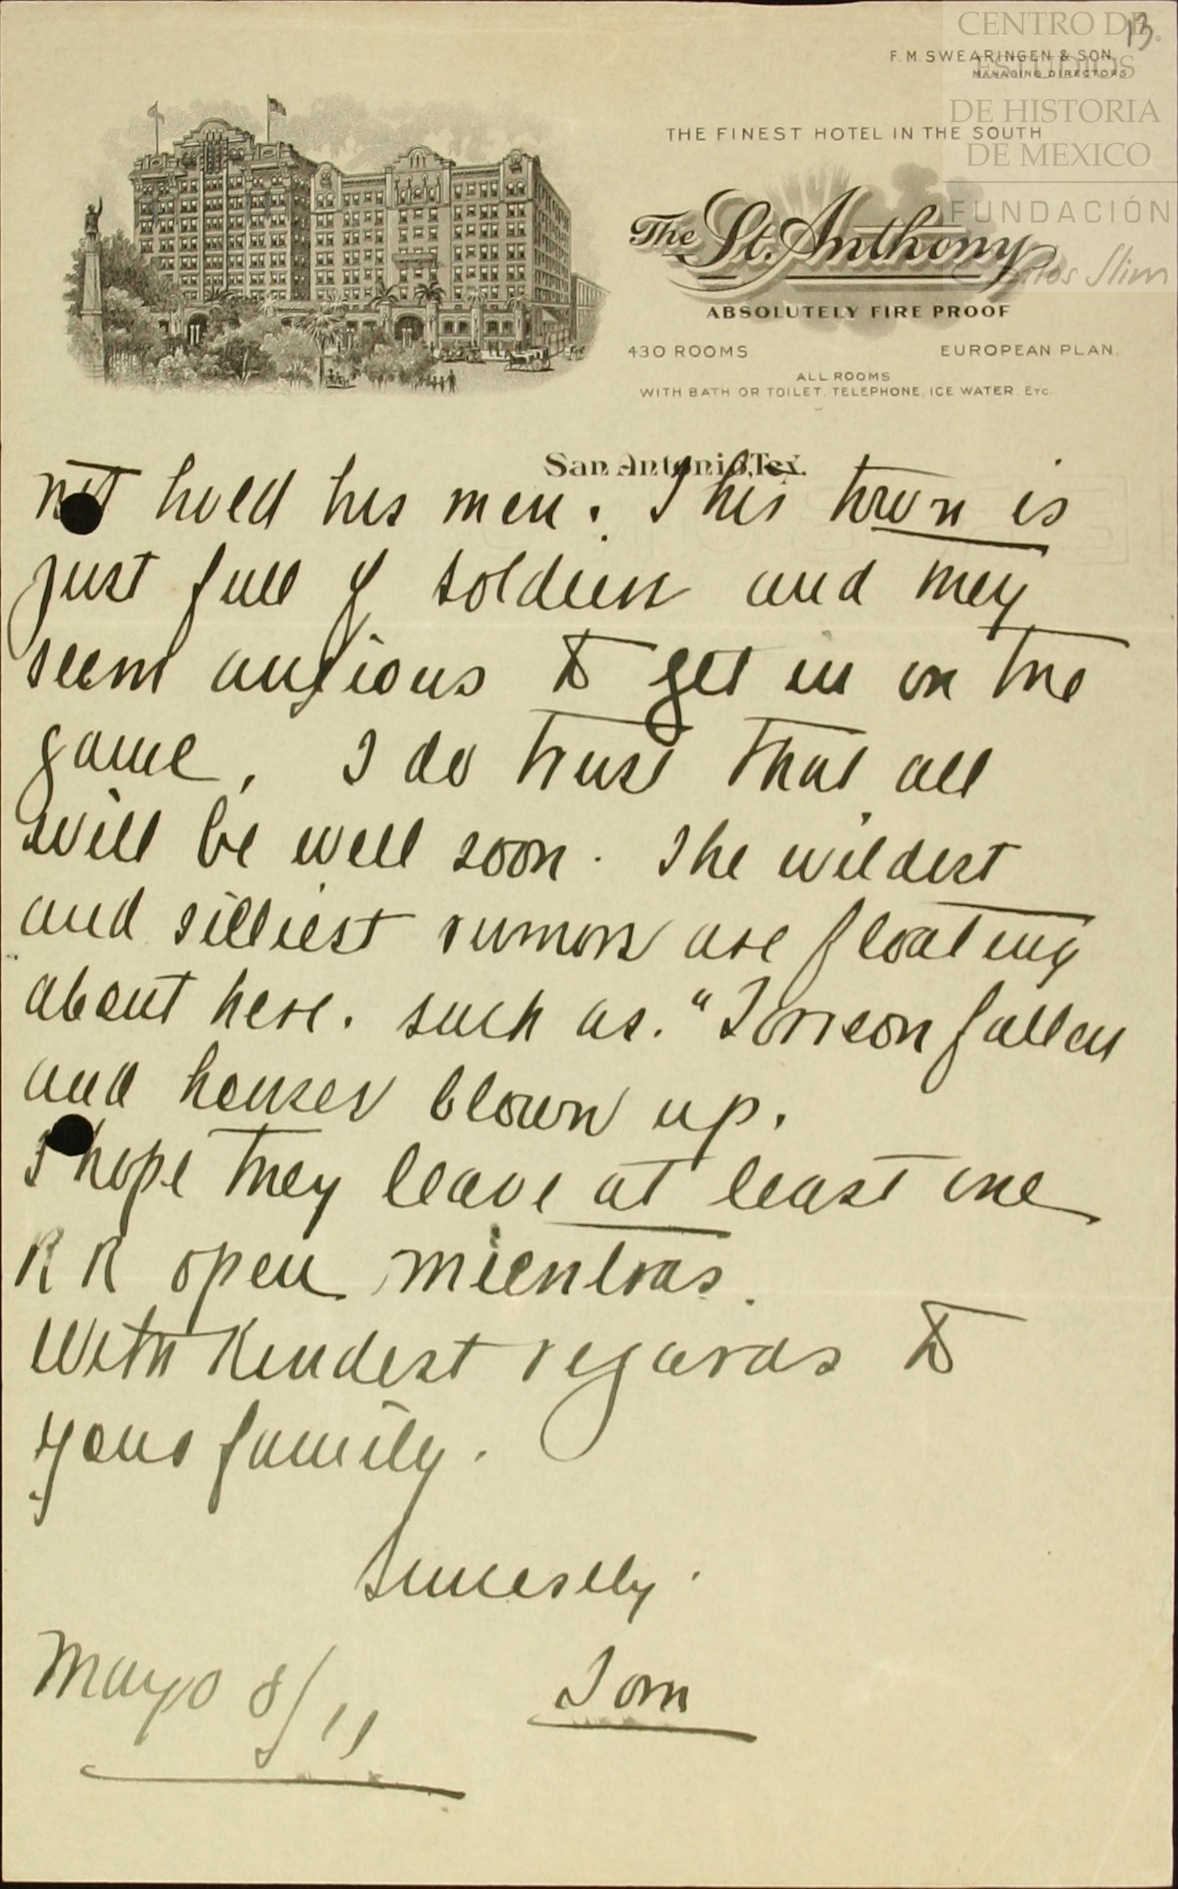 13.
CENTRO DE
ESTUDIOS
DE HISTORIA
DE MEXICO
FUNDACIÓN
Carlos Slim
F. M. SWEARINGEN & SON
MANAGING DIRECTORS
THE FINEST HOTEL IN THE SOUTH
The St. Anthony
ABSOLUTELY FIRE PROOF
430 ROOMS EUROPEAN PLAN.
ALL ROOMS
WITH BATH OR TOILET, TELEPHONE, ICE WATER, ETC.
San Antonio, Tex.
not hold his men. This town is
just full of soldiers and they
seem anxious to get in on the
game. I do trust that all
will be well soon. The wildest
and silliest rumors are floating
about here. such as. "Torreon fallen
and houses blown up.
I hope they leave at least one
R R open mientras.
With Kindest regards to
your family.
Sincerely.
Tom
Mayo 8/11